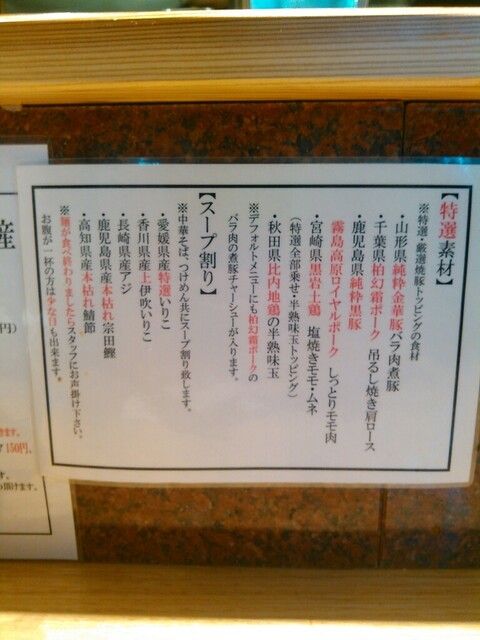 【特選素材】
※特選・厳選焼豚トッピングの食材
・山形県純粋金華豚バラ肉煮豚
・千葉県柏幻霜ポーク 吊るし焼き肩ロース
・鹿児島県純粋黒豚
霧島高原ロイヤルポーク しっとりモモ肉
・宮崎県黒岩土鶏 塩焼きモモ・ムネ
(特選全部乗せ・半熟味玉トッピング)
・秋田県比内地鶏の半熟味玉
※デフォルトメニューにも柏幻霜ポークの
バラ肉の煮豚チャーシューが入ります。
【スープ割り】
※中華そば、つけめん共にスープ割り致します。
・愛媛県産特選いりこ
・香川県産上伊吹いりこ
・長崎県産アジ
・鹿児島県産本枯れ宗田鰹
・高知県産本枯れ鯖節
※麺が食べ終わりましたらスタッフにお声掛け下さい。
お腹が一杯の方は少な目も出来ます。
産
円)
きます。
150円、
す。
頂けます。